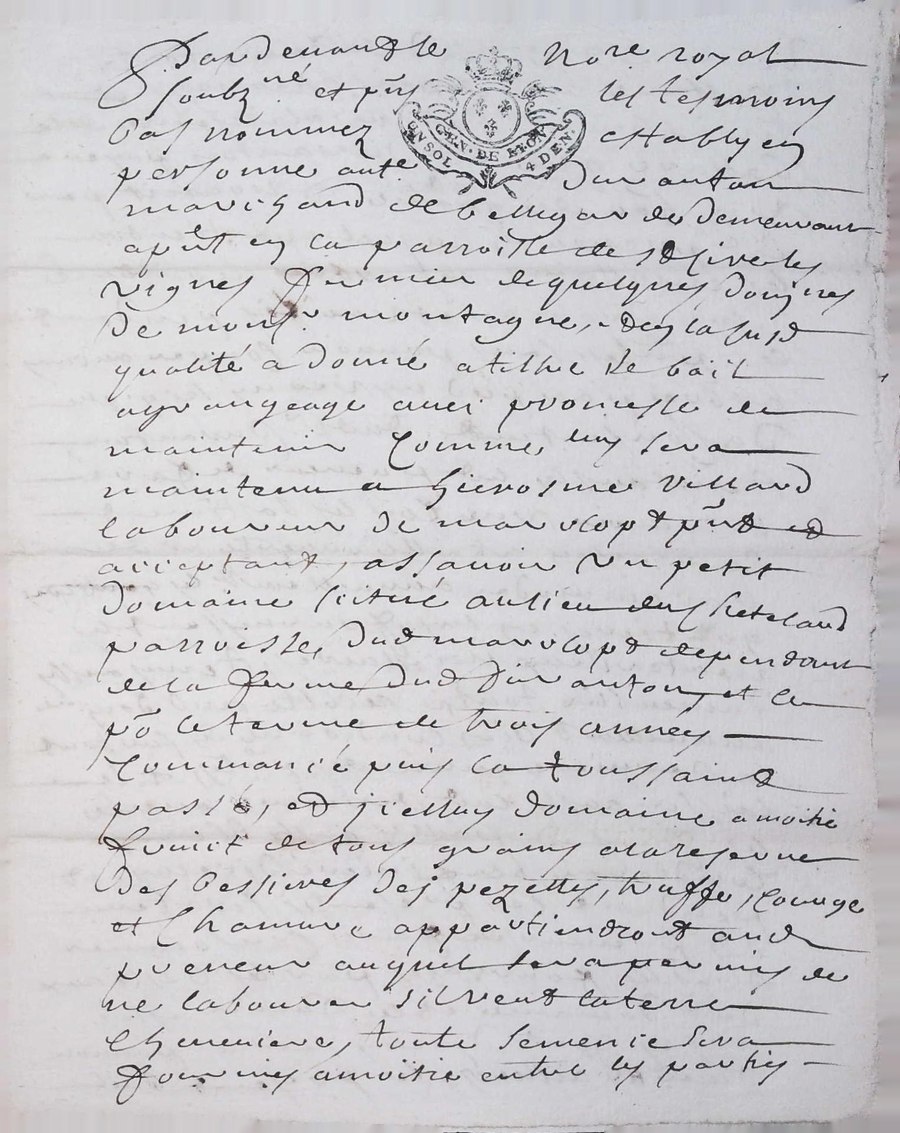 Pardevant le No.re royal
soubz.né et pñs les tesmoins
bas nommez estably en
personne aut.
marchand de bellegarde demeurant
apñt en la parroisse de St Cire les
vignes fermier de quelques domaines
de mons.r montagne, en la susd
qualité a donné a tiltre de bail
a grangeage avec promesse de
maintenir comme luy sera
maintenu a hierosme villard
laboureur de marclopt pñt et
acceptant, assavoir un petit
domaine scitué au lieu du Chateland
parroisse, dud marclopt dependant
de la ferme dud et ce
po le terme de trois années
commancé puis la toussainct
passé, et jcelluy domaine a moitié
fruict de tous grains a la reserve
des pessieres des pezettes, truffe, courge
et Chanvre appartiendront aud
preneur auquel sera permis de
ne labourer s'il veut la terre
cheneviere, toute semence sera
fournies a moitié entre les parties
GEN. DE LION
UN SOL 4 DEN.